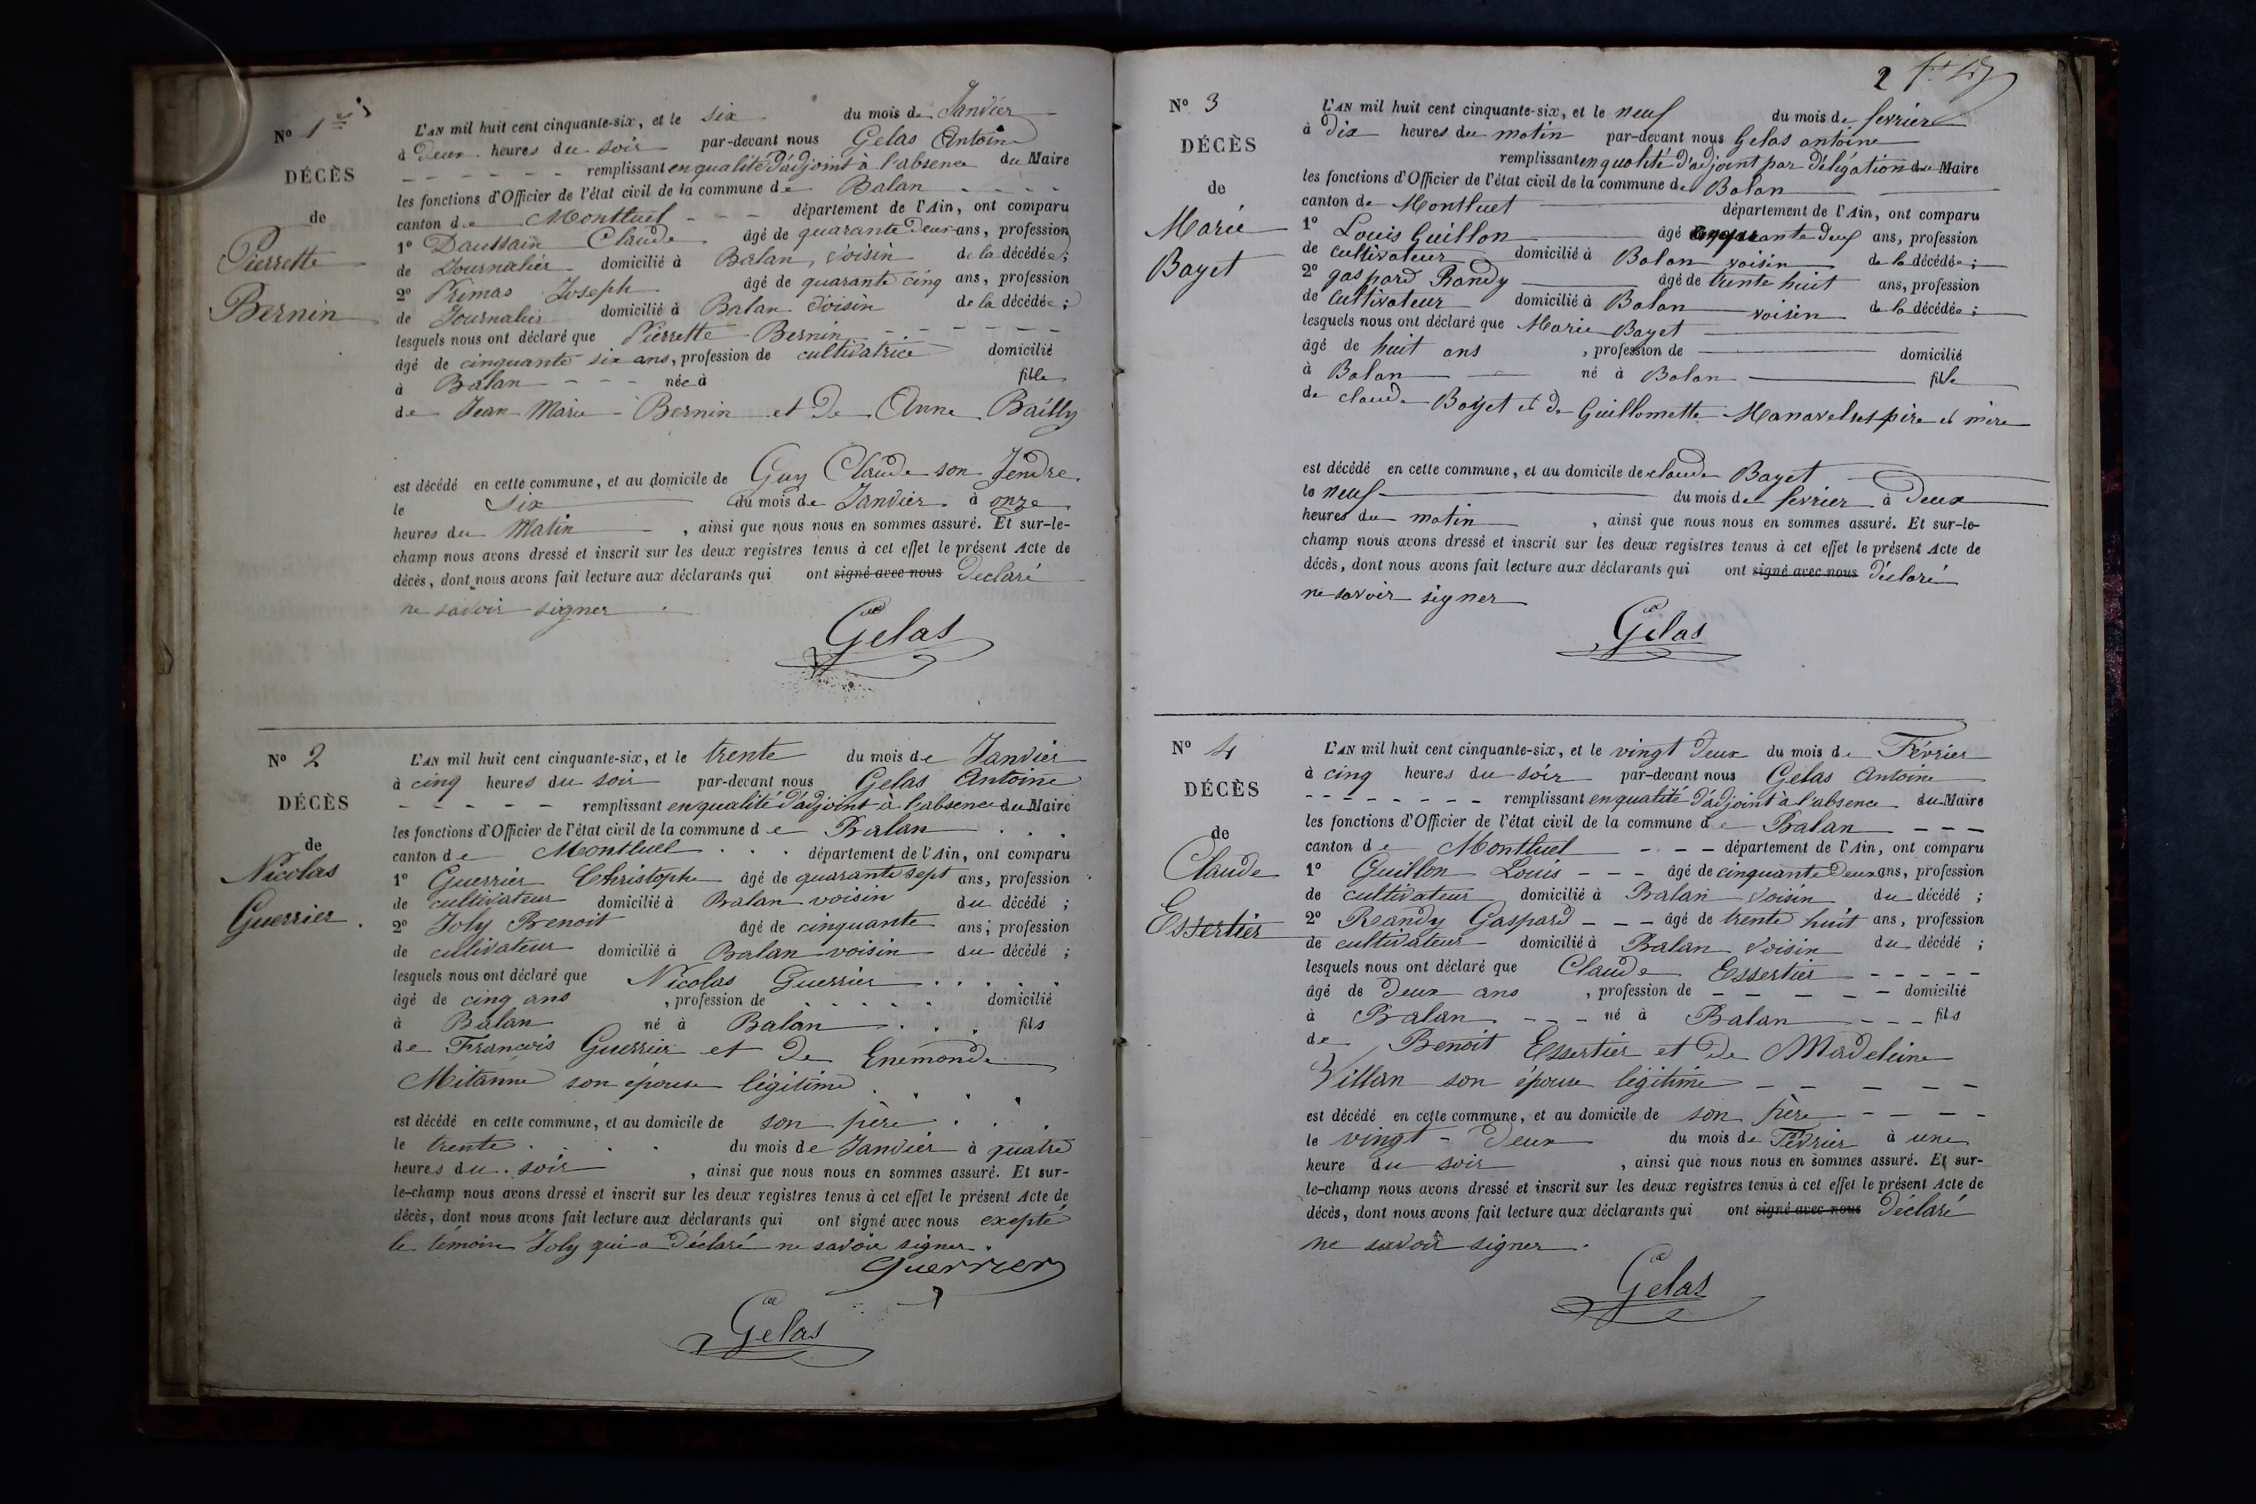 N° 1er
DÉCÈS
de
Pierrette
Bernin
L'AN mil huit cent cinquante-six, et le six du mois de Janvier
à Deux heures du soir par-devant nous Gelas Antoine
remplissant en qualité d'adjoint à l'absence du Maire
les fonctions d'Officier de l'état civil de la commune de Balan
canton de Montluel département de l'Ain, ont comparu
1° Daussain Claude âgé de quarante deux ans, profession
de Journalier domicilié à Balan, voisin de la décédée;
2° Primas Joseph âgé de quarante cinq ans, profession
de Journalier domicilié à Balan voisin de la décédée;
lesquels nous ont déclaré que Pierrette Bernin
âgé de cinquante six ans, profession de cultivatrice domicilié
à Balan née à fille
de Jean Marie Bernin et de Anne Bailly
est décédé en cette commune, et au domicile de Guy Claude son Jendre
le six du mois de Janvier à onze
heures du Matin, ainsi que nous nous en sommes assuré. Et sur-le-
champ nous avons dressé et inscrit sur les deux registres tenus à cet effet le présent Acte de
décès, dont nous avons fait lecture aux déclarants qui ont signé avec nous Declaré
ne savoir signer
Gelas
N° 2
DÉCÈS
de
Nicolas
Guerrier
L'AN mil huit cent cinquante-six, et le trente du mois de Janvier
à cinq heures du soir par-devant nous Gelas Antoine
remplissant en qualité d'adjoint à l'absence du Maire
les fonctions d'Officier de l'état civil de la commune de Balan
canton de Montluel département de l'Ain, ont comparu
1° Guerrier Christophe âgé de quarante sept ans, profession
de cultivateur domicilié à Balan voisin du décédé ;
2° Joly Benoit âgé de cinquante ans; profession
de cultivateur domicilié à Balan voisin du décédé ;
lesquels nous ont déclaré que Nicolas Guerrier
âgé de cinq ans, profession de domicilié
à Balan né à Balan fils
de Francois Guerrier et de Enemonde
Mitanne son épouse légitime
est décédé en cette commune, et au domicile de son père
le trente du mois de Janvier à quatre
heures du soir, ainsi que nous nous en sommes assuré. Et sur-
le-champ nous avons dressé et inscrit sur les deux registres tenus à cet effet le présent Acte de
décès, dont nous avons fait lecture aux déclarants qui ont signé avec nous exepté
le temoin Joly qui a Déclaré ne savoir signer.
Guerrier
Gelas
2
N° 3
DÉCÈS
de
Marie
Bayet
L'AN mil huit cent cinquante-six, et le neuf du mois de fevrier
à Dix heures du matin par-devant nous Gelas antoine
remplissant en qualité d'adjoint par Délégation du Maire
les fonctions d'Officier de l'état civil de la commune de Balan
canton de Montluet département de l'Ain, ont comparu
1° Louis Guillon âgé ans, profession
de cultivateur domicilié à Balan voisin de la décédée;
2° gaspard Randy âgé de trente huit ans, profession
de cultivateur domicilié à Balan voisin de la décédée;
lesquels nous ont déclaré que Marie Bayet
âgé de huit ans, profession de domicilié
à Balan né à Balan fille
de claude Bayet et de Guillemette père et mère
est décédé en cette commune, et au domicile de claude Bayet
le neuf du mois de fevrier à Deux
heures du matin, ainsi que nous nous en sommes assuré. Et sur-le-
champ nous avons dressé et inscrit sur les deux registres tenus à cet effet le présent Acte de
décès, dont nous avons fait lecture aux déclarants qui ont signé avec nous déclaré
ne savoir signer
Gelas
N° 4
DÉCÈS
de
Claude
Essertier
L'AN mil huit cent cinquante-six, et le vingt Deux du mois de Février
à cinq heures du soir par-devant nous Gelas Antoine
remplissant en qualité d'adjoint à l'absence du Maire
les fonctions d'Officier de l'état civil de la commune de Balan
canton de Montluel département de l'Ain, ont comparu
1° Guillon Louis âgé de cinquante Deux ans, profession
de cultivateur domicilié à Balan voisin du décédé ;
2° Randy Gaspard âgé de trente huit ans, profession
de cultivateur domicilié à Balan voisin du décédé ;
lesquels nous ont déclaré que Claude Essertier
âgé de Deux ans, profession de domicilié
à Balan né à Balan fils
de Benoit Essertier et de Madeleine
Villan son épouse légitime
est décédé en cette commune, et au domicile de son père
le vingt-Deux du mois de Février à une
heure du soir, ainsi que nous nous en sommes assuré. Et sur-
le-champ nous avons dressé et inscrit sur les deux registres tenus à cet effet le présent Acte de
décès, dont nous avons fait lecture aux déclarants qui ont signé avec nous Déclaré
ne savoir signer.
Gelas